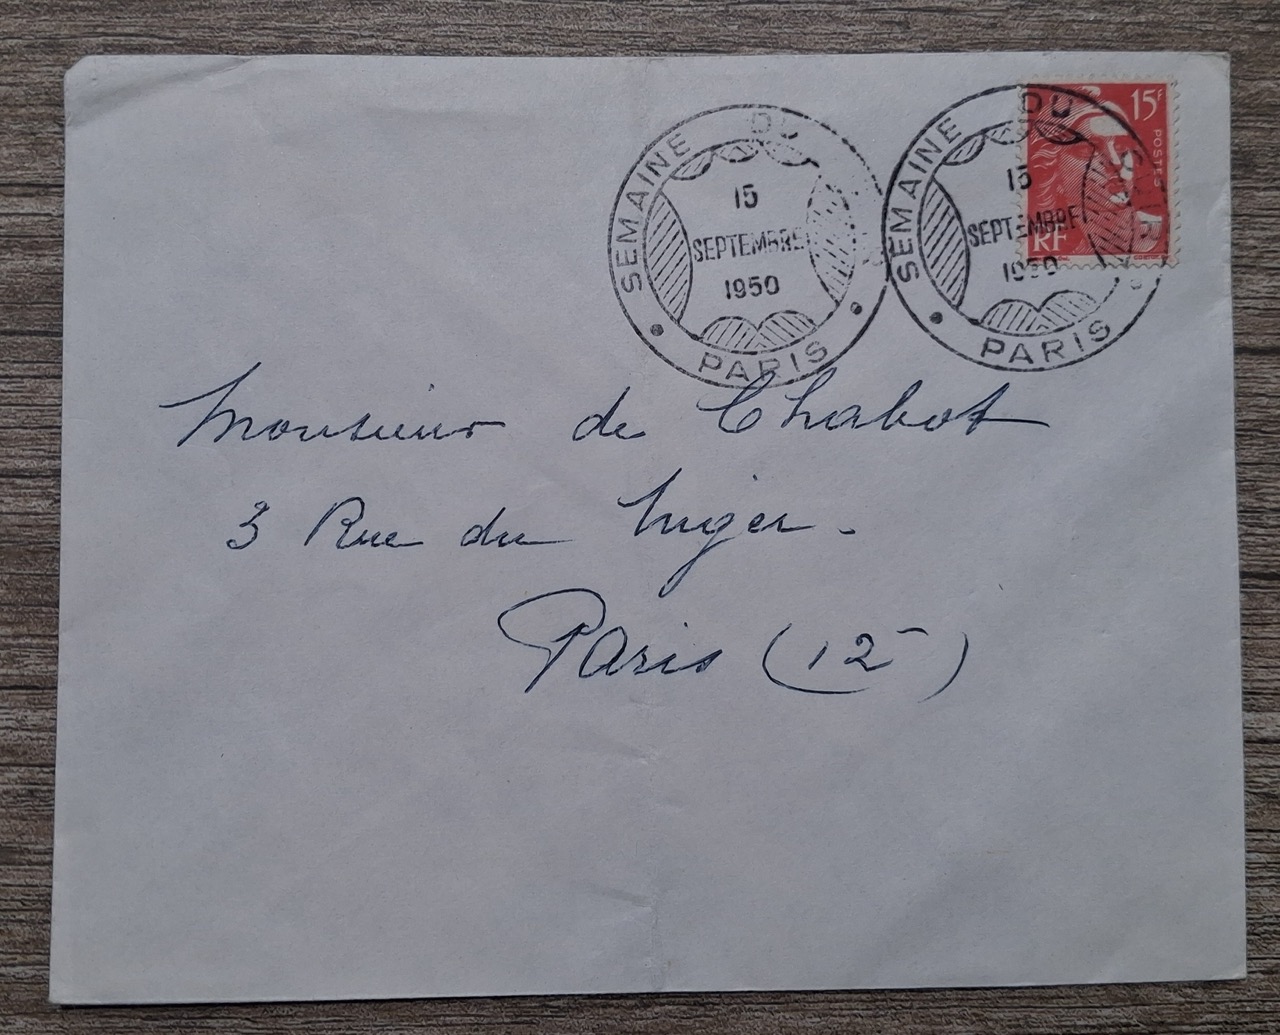 SEMAINE DU
15
SEPTEMBRE
1950
PARIS
SEMAINE DU
15
SEPTEMBRE
1950
PARIS
15F
POSTES
RF
Monsieur de Chabot
3 Rue du Niger.
Paris (12e)